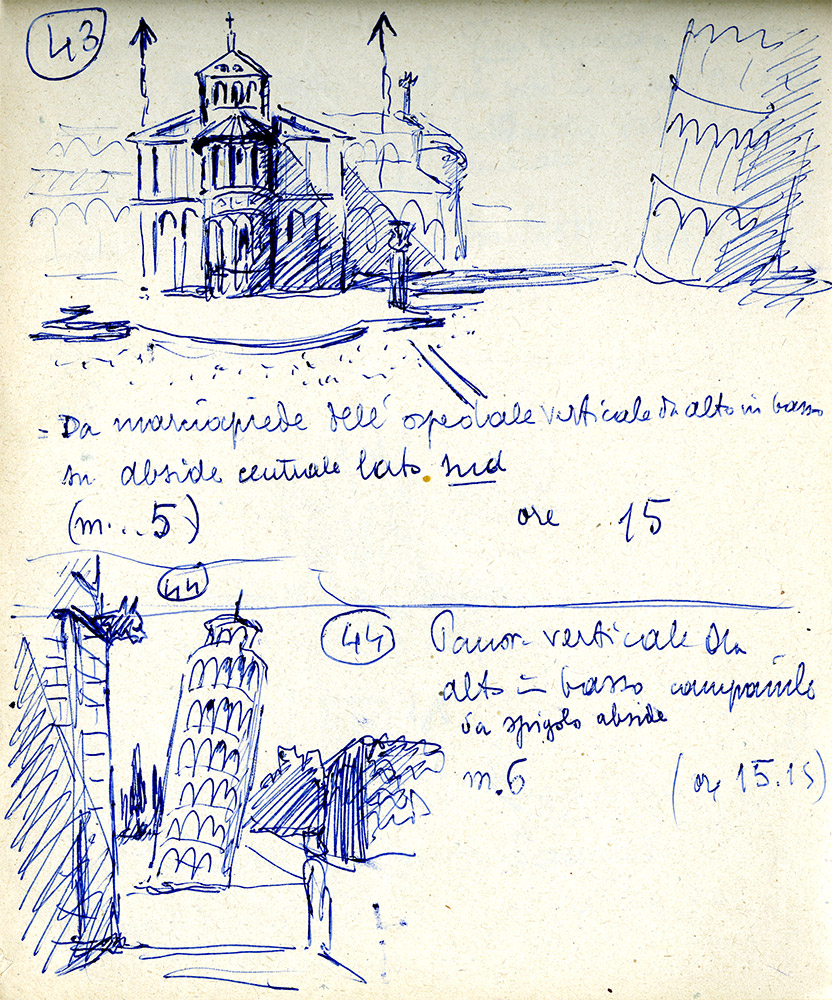 43
= Da marciapiede dell' ospedale verticale da alto in basso
su abside centrale lato sud
(m... 5) ore 15
44
44 Panor. verticale da
alto in basso campanile
da spigolo abside
m. 6 (ore 15.15)